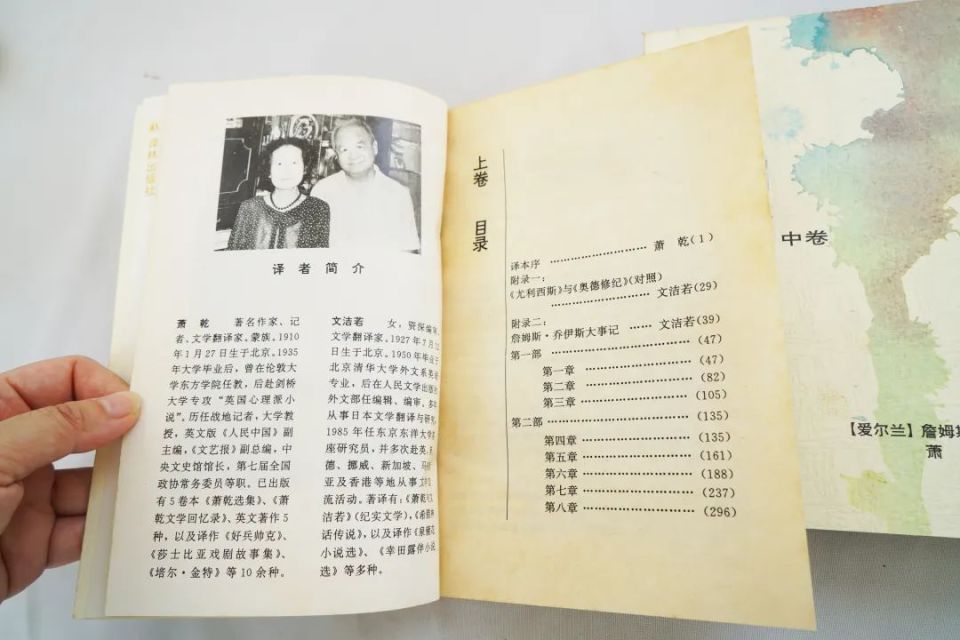 译林出版社
译者简介
萧乾 著名作家、记
者、文学翻译家。蒙族。1910
年1月27日生于北京。1935
年大学毕业后，曾在伦敦大
学东方学院任教，后赴剑桥
大学专攻“英国心理派小
说”。历任战地记者，大学教
授，英文版《人民中国》副
主编，《文艺报》副总编，中
央文史馆馆长，第七届全国
政协常务委员等职。已出版
有5卷本《萧乾选集》、《萧
乾文学回忆录》、英文著作5
种，以及译作《好兵帅克》、
《莎士比亚戏剧故事集》、
《培尔·金特》等10余种。
文洁若 女，资深编审、
文学翻译家。1927年7月
日生于北京。1950年毕业于
北京清华大学外文系英
专业，后在人民文学出版社
外文部任编辑、编审。多年
从事日本文学翻译与研究。
1985年任东京东洋大学
座研究员，并多次赴英、
德、挪威、新加坡、马
亚及香港等地从事
流活动。著译有：《萧乾与文
洁若》（纪实文学）、
话传说》，以及译作
小说选》、《幸田露伴小说
选》等多种。
上卷 目录
译本序 …… 萧乾(1)
附录一：
《尤利西斯》与《奥德修纪》(对照)
…… 文洁若(29)
附录二：
詹姆斯·乔伊斯大事记 …… 文洁若(39)
第一部 …… (47)
第一章 …… (47)
第二章 …… (82)
第三章 …… (105)
第二部 …… (135)
第四章 …… (135)
第五章 …… (161)
第六章 …… (188)
第七章 …… (237)
第八章 …… (296)
中卷
【爱尔兰】詹姆斯
萧